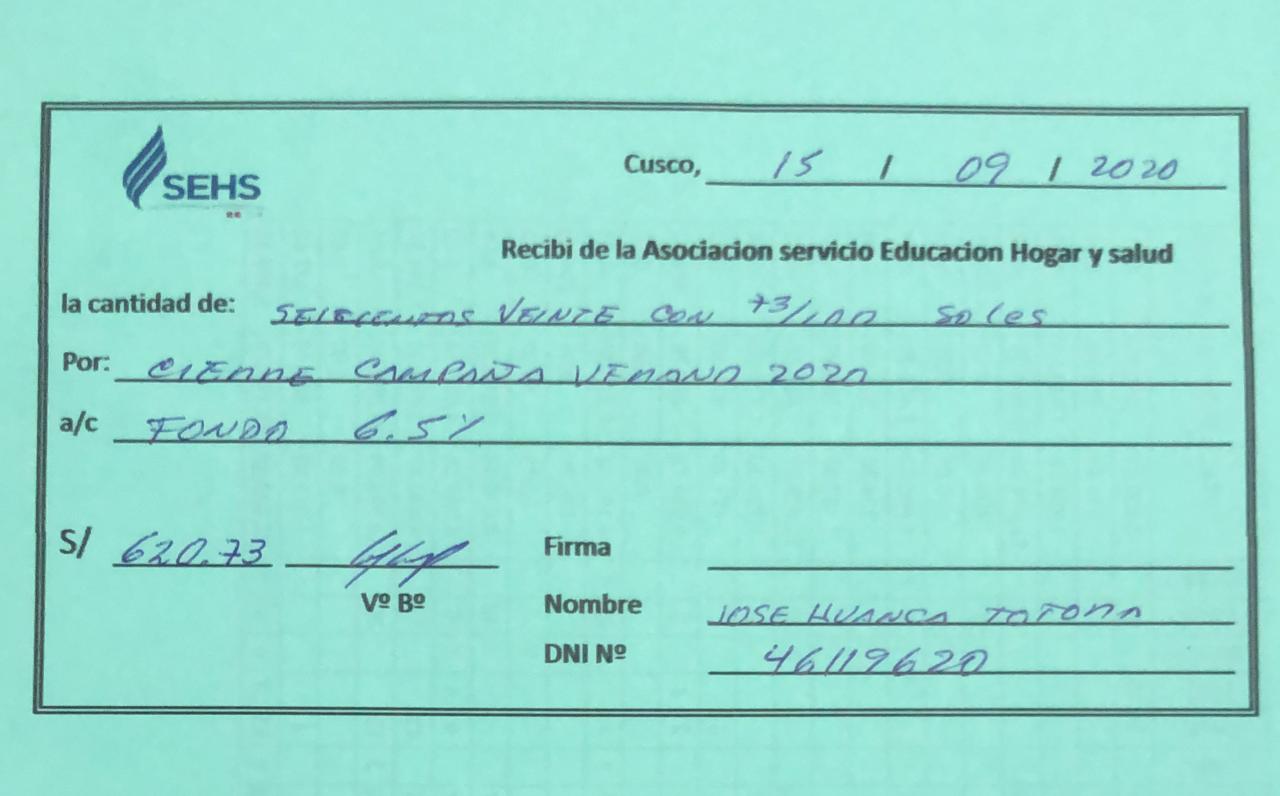 SEHS
Cusco, 15 / 09 / 2020
Recibi de la Asociacion servicio Educacion Hogar y salud
la cantidad de: SEISCIENTOS VEINTE CON 73/100 Soles
Por: CIERRE CAMPAÑA VERANO 2020
a/c FONDO 6.5%
S/ 620.73
Vº Bº
Firma
Nombre JOSE HUANCA
DNI Nº 46119620